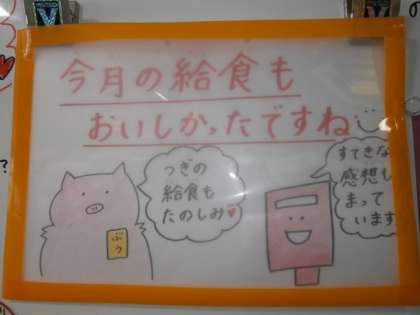 今月の給食も
おいしかったですね
つぎの
給食も
たのしみ♥
すてきな
感想も
まって
います
ぶう